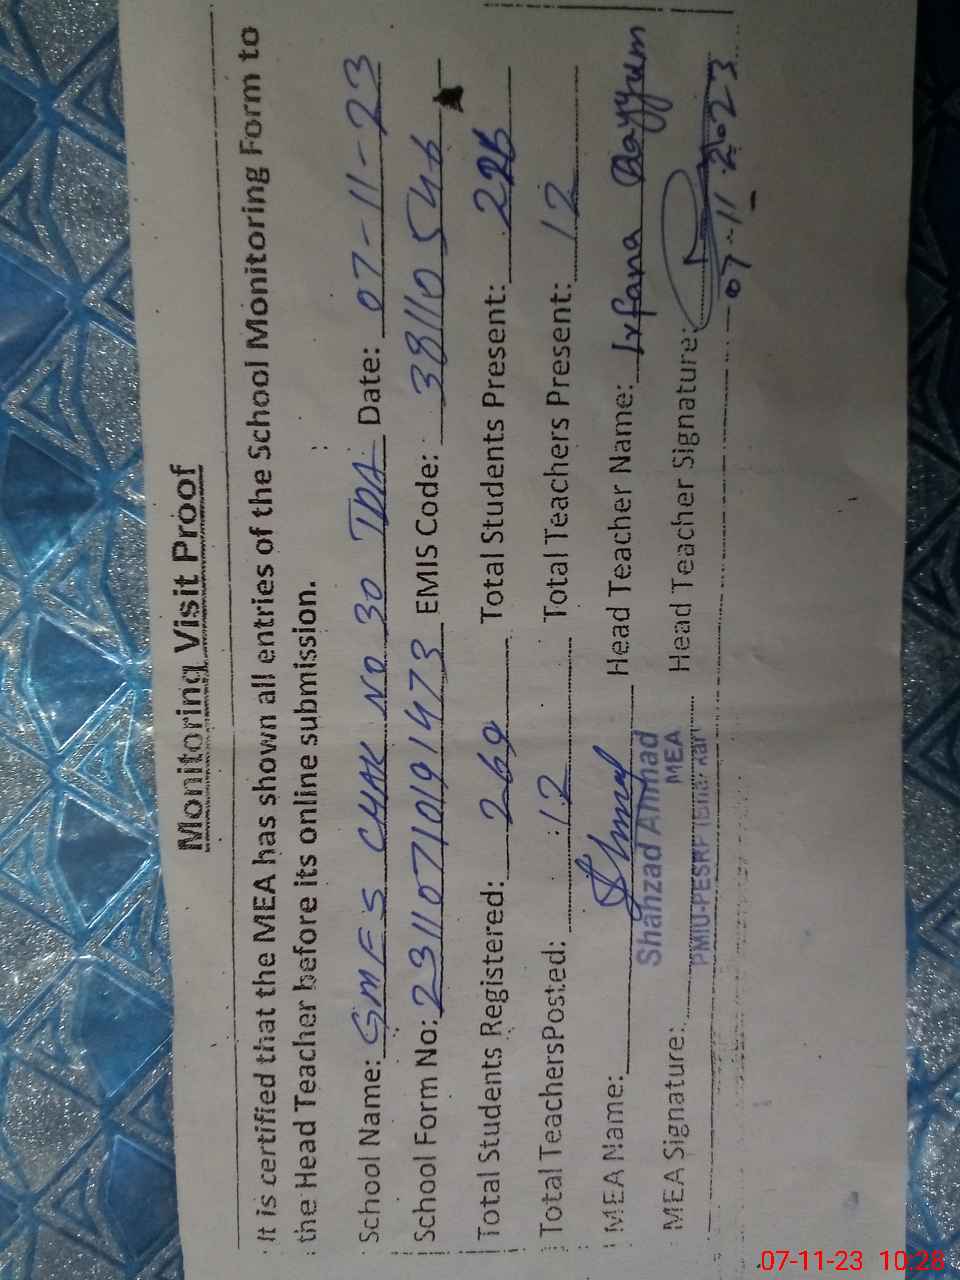 Monitoring Visit Proof
It is certified that the MEA has shown all entries of the School Monitoring Form to
the Head Teacher before its online submission.
School Name: GMES CHAK NO 30 TDA Date: 07-11-23
School Form No: 23110710191473 EMIS Code: 38110546
Total Students Registered: 269 Total Students Present: 226
Total TeachersPosted: 12 Total Teachers Present: 12
MEA Name: Head Teacher Name: Irfana Qayyum
Shahzad Ahmad
MEA
MEA Signature: PMIU-PESRP Head Teacher Signature:
07-11-2023
07-11-23 10:28